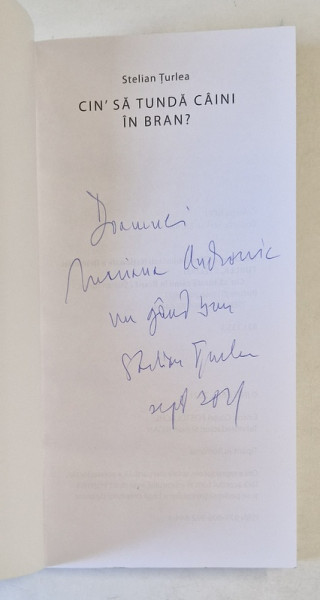 Stelian Țurlea
CIN' SĂ TUNDĂ CÂINI
ÎN BRAN?
Doamnei
Mariana Andronic
un gând bun
Stelian Țurlea
sept